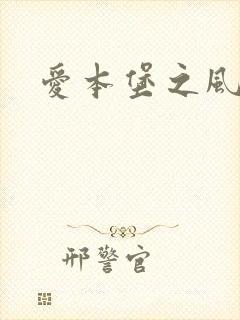 愛本堡之風
邢警官